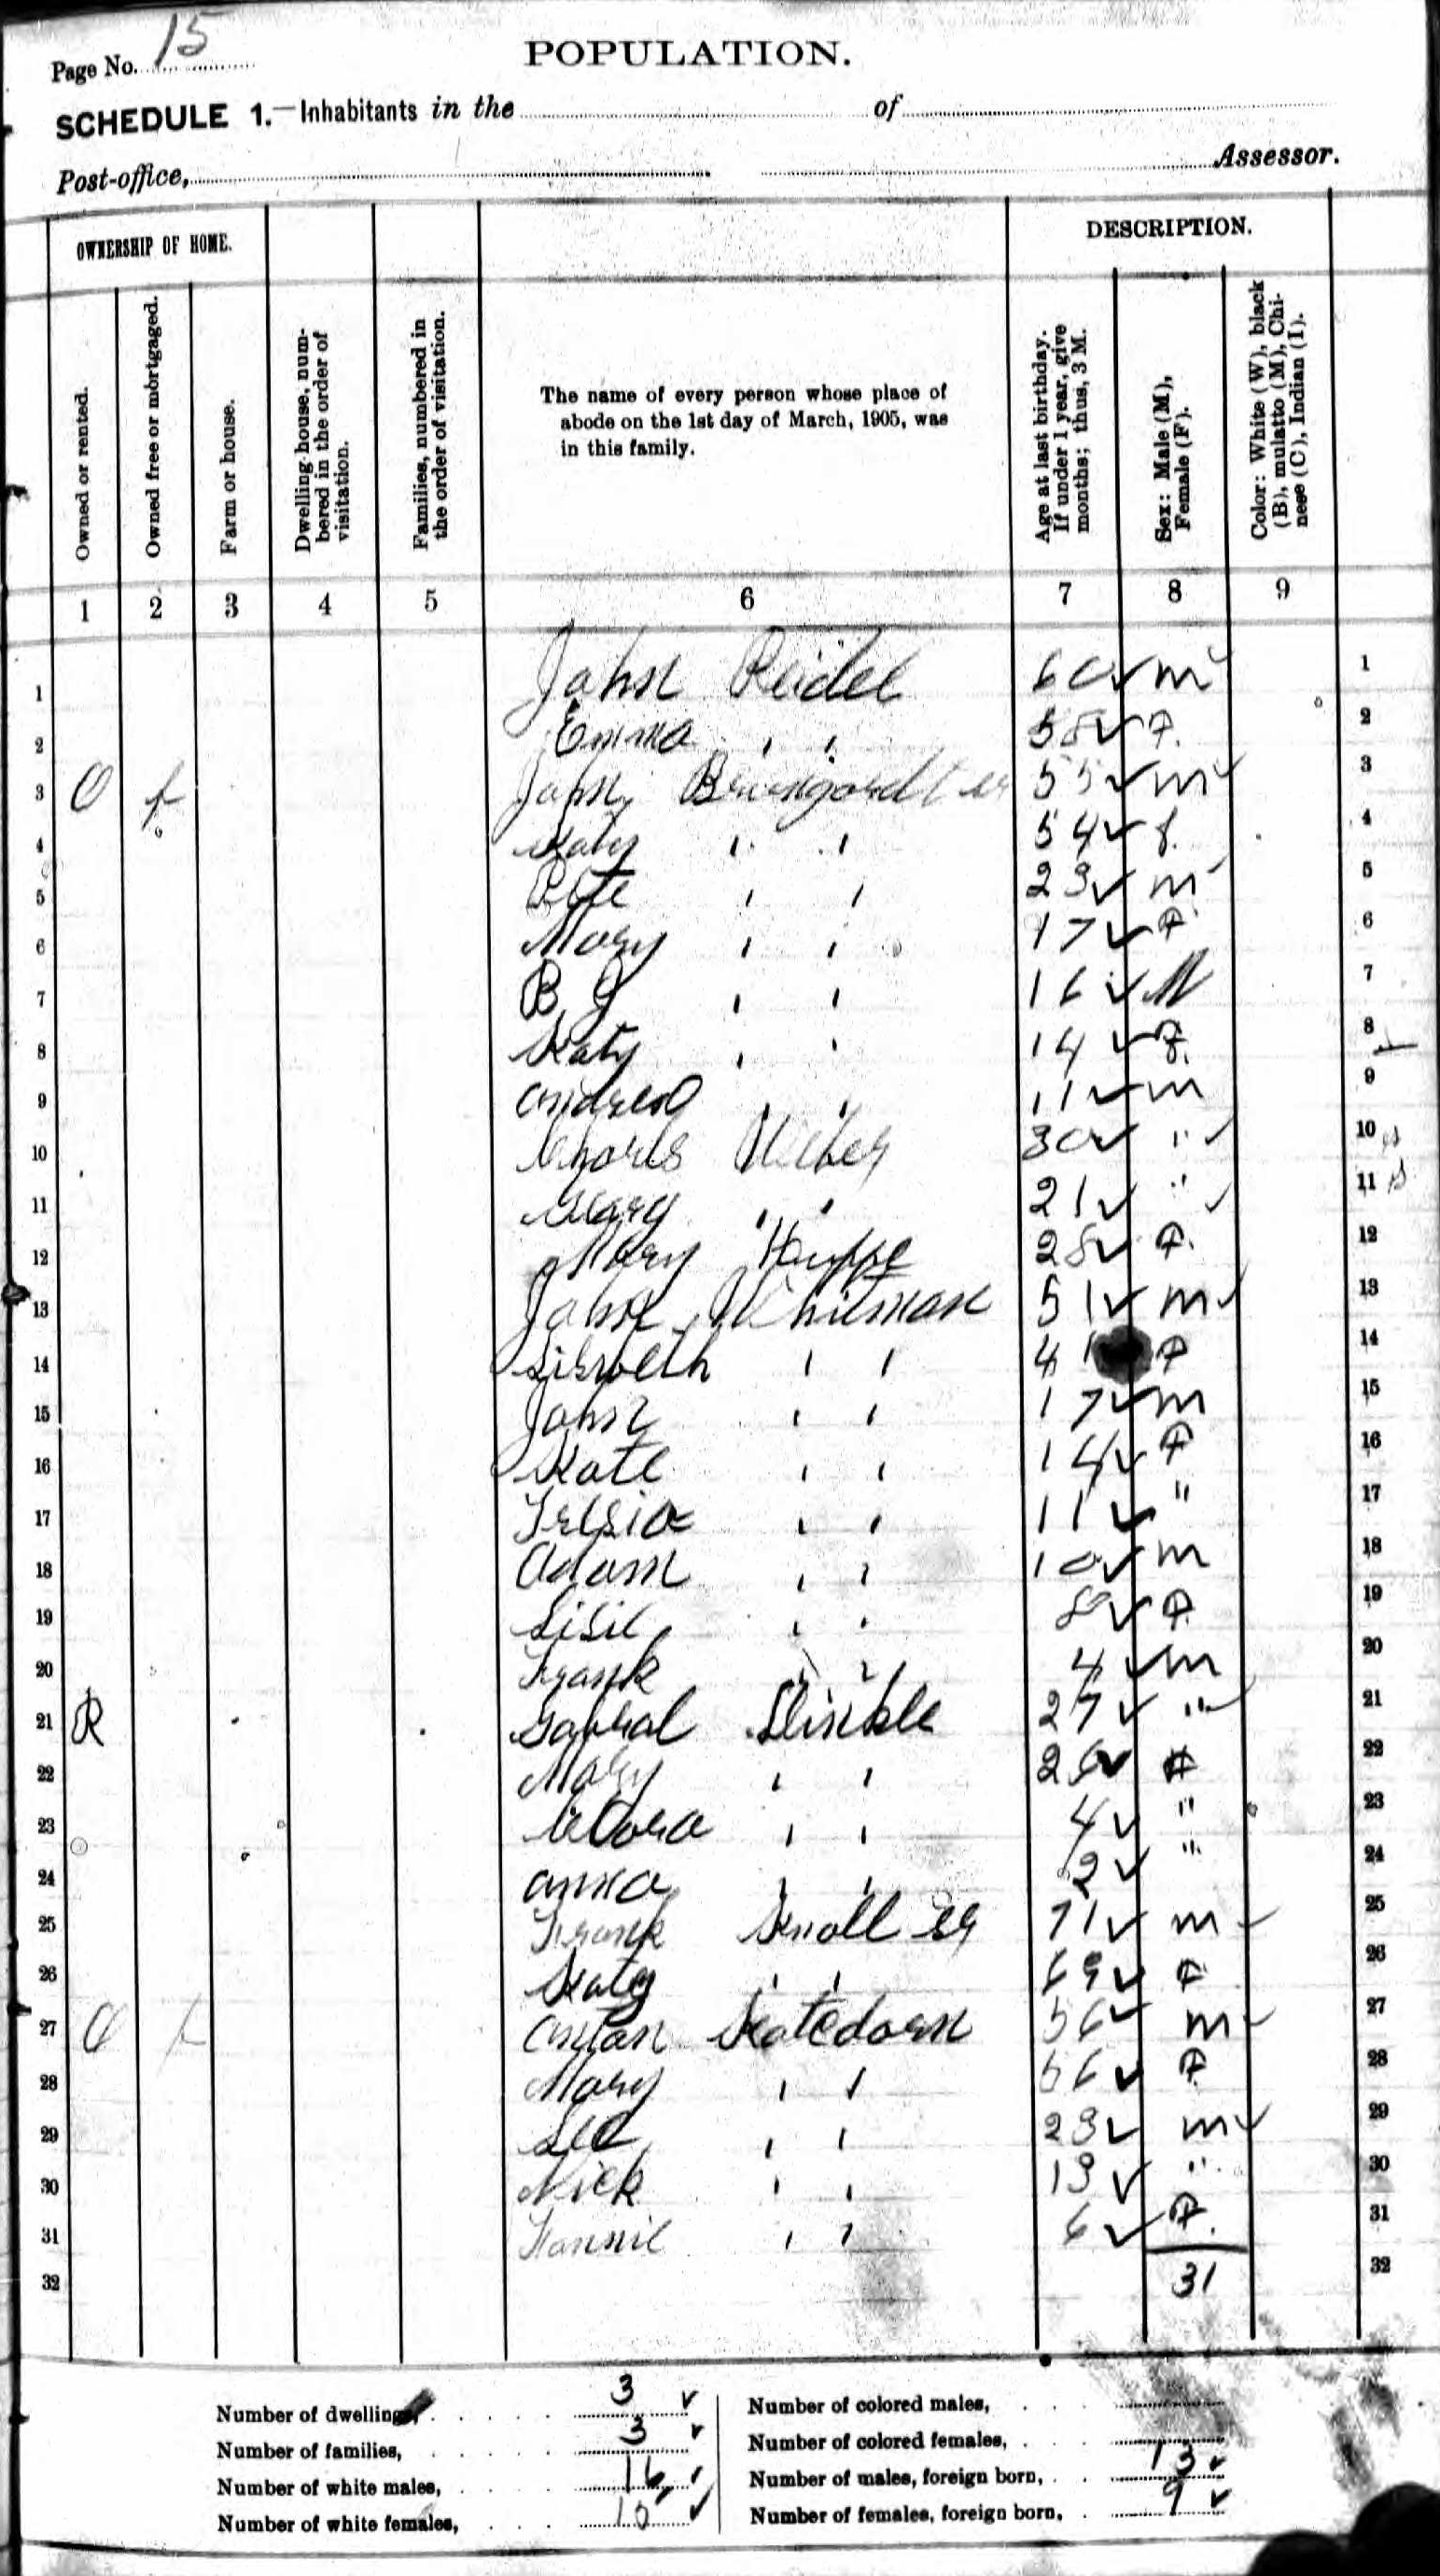 Page No. 15
POPULATION.
SCHEDULE 1.—Inhabitants in the of
Post-office, Assessor.
OWNERSHIP OF HOME. DESCRIPTION.
Owned or rented.
Owned free or mortgaged.
Farm or house.
Dwelling-house, num-
bered in the order of
visitation.
Families, numbered in
the order of visitation.
The name of every person whose place of
abode on the 1st day of March, 1905, was
in this family.
Age at last birthday.
If under 1 year, give
months; thus, 3 M.
Sex: Male (M),
Female (F).
Color: White (W), black
(B), mulatto (M), Chi-
nese (C), Indian (I).
1 2 3 4 5 6 7 8 9
1 John Reidel 60 m 1
2 Emma " 58 F. 2
3 O f John 55 m 3
4 Katy " 54 f. 4
5 Pete " 23 m 5
6 Mary " 17 F 6
7 B J " 16 M 7
8 Katy " 14 F. 8
9 Andrew " 11 m 9
10 Weber 30 " 10
11 " 21 " 11
12 Mary 28 F. 12
13 John 51 m 13
14 " 4 F 14
15 John " 17 m 15
16 Kate " 14 F 16
17 Tresia " 11 " 17
18 Adam " 10 m 18
19 Lisie " 8 F. 19
20 Frank " 4 m 20
21 R Gabral 27 " 21
22 Mary " 26 F 22
23 " 4 " 23
24 Anna " 2 " 24
25 Frank Knoll 71 m 25
26 Katy " 69 F 26
27 O f Anton 56 m 27
28 Mary " 56 F. 28
29 Lee " 23 m 29
30 Nick " 13 " 30
31 Fannie " 6 F. 31
32 31 32
Number of dwellings, 3 Number of colored males,
Number of families, 3 Number of colored females,
Number of white males, 16 Number of males, foreign born, 13
Number of white females, 15 Number of females, foreign born, 9